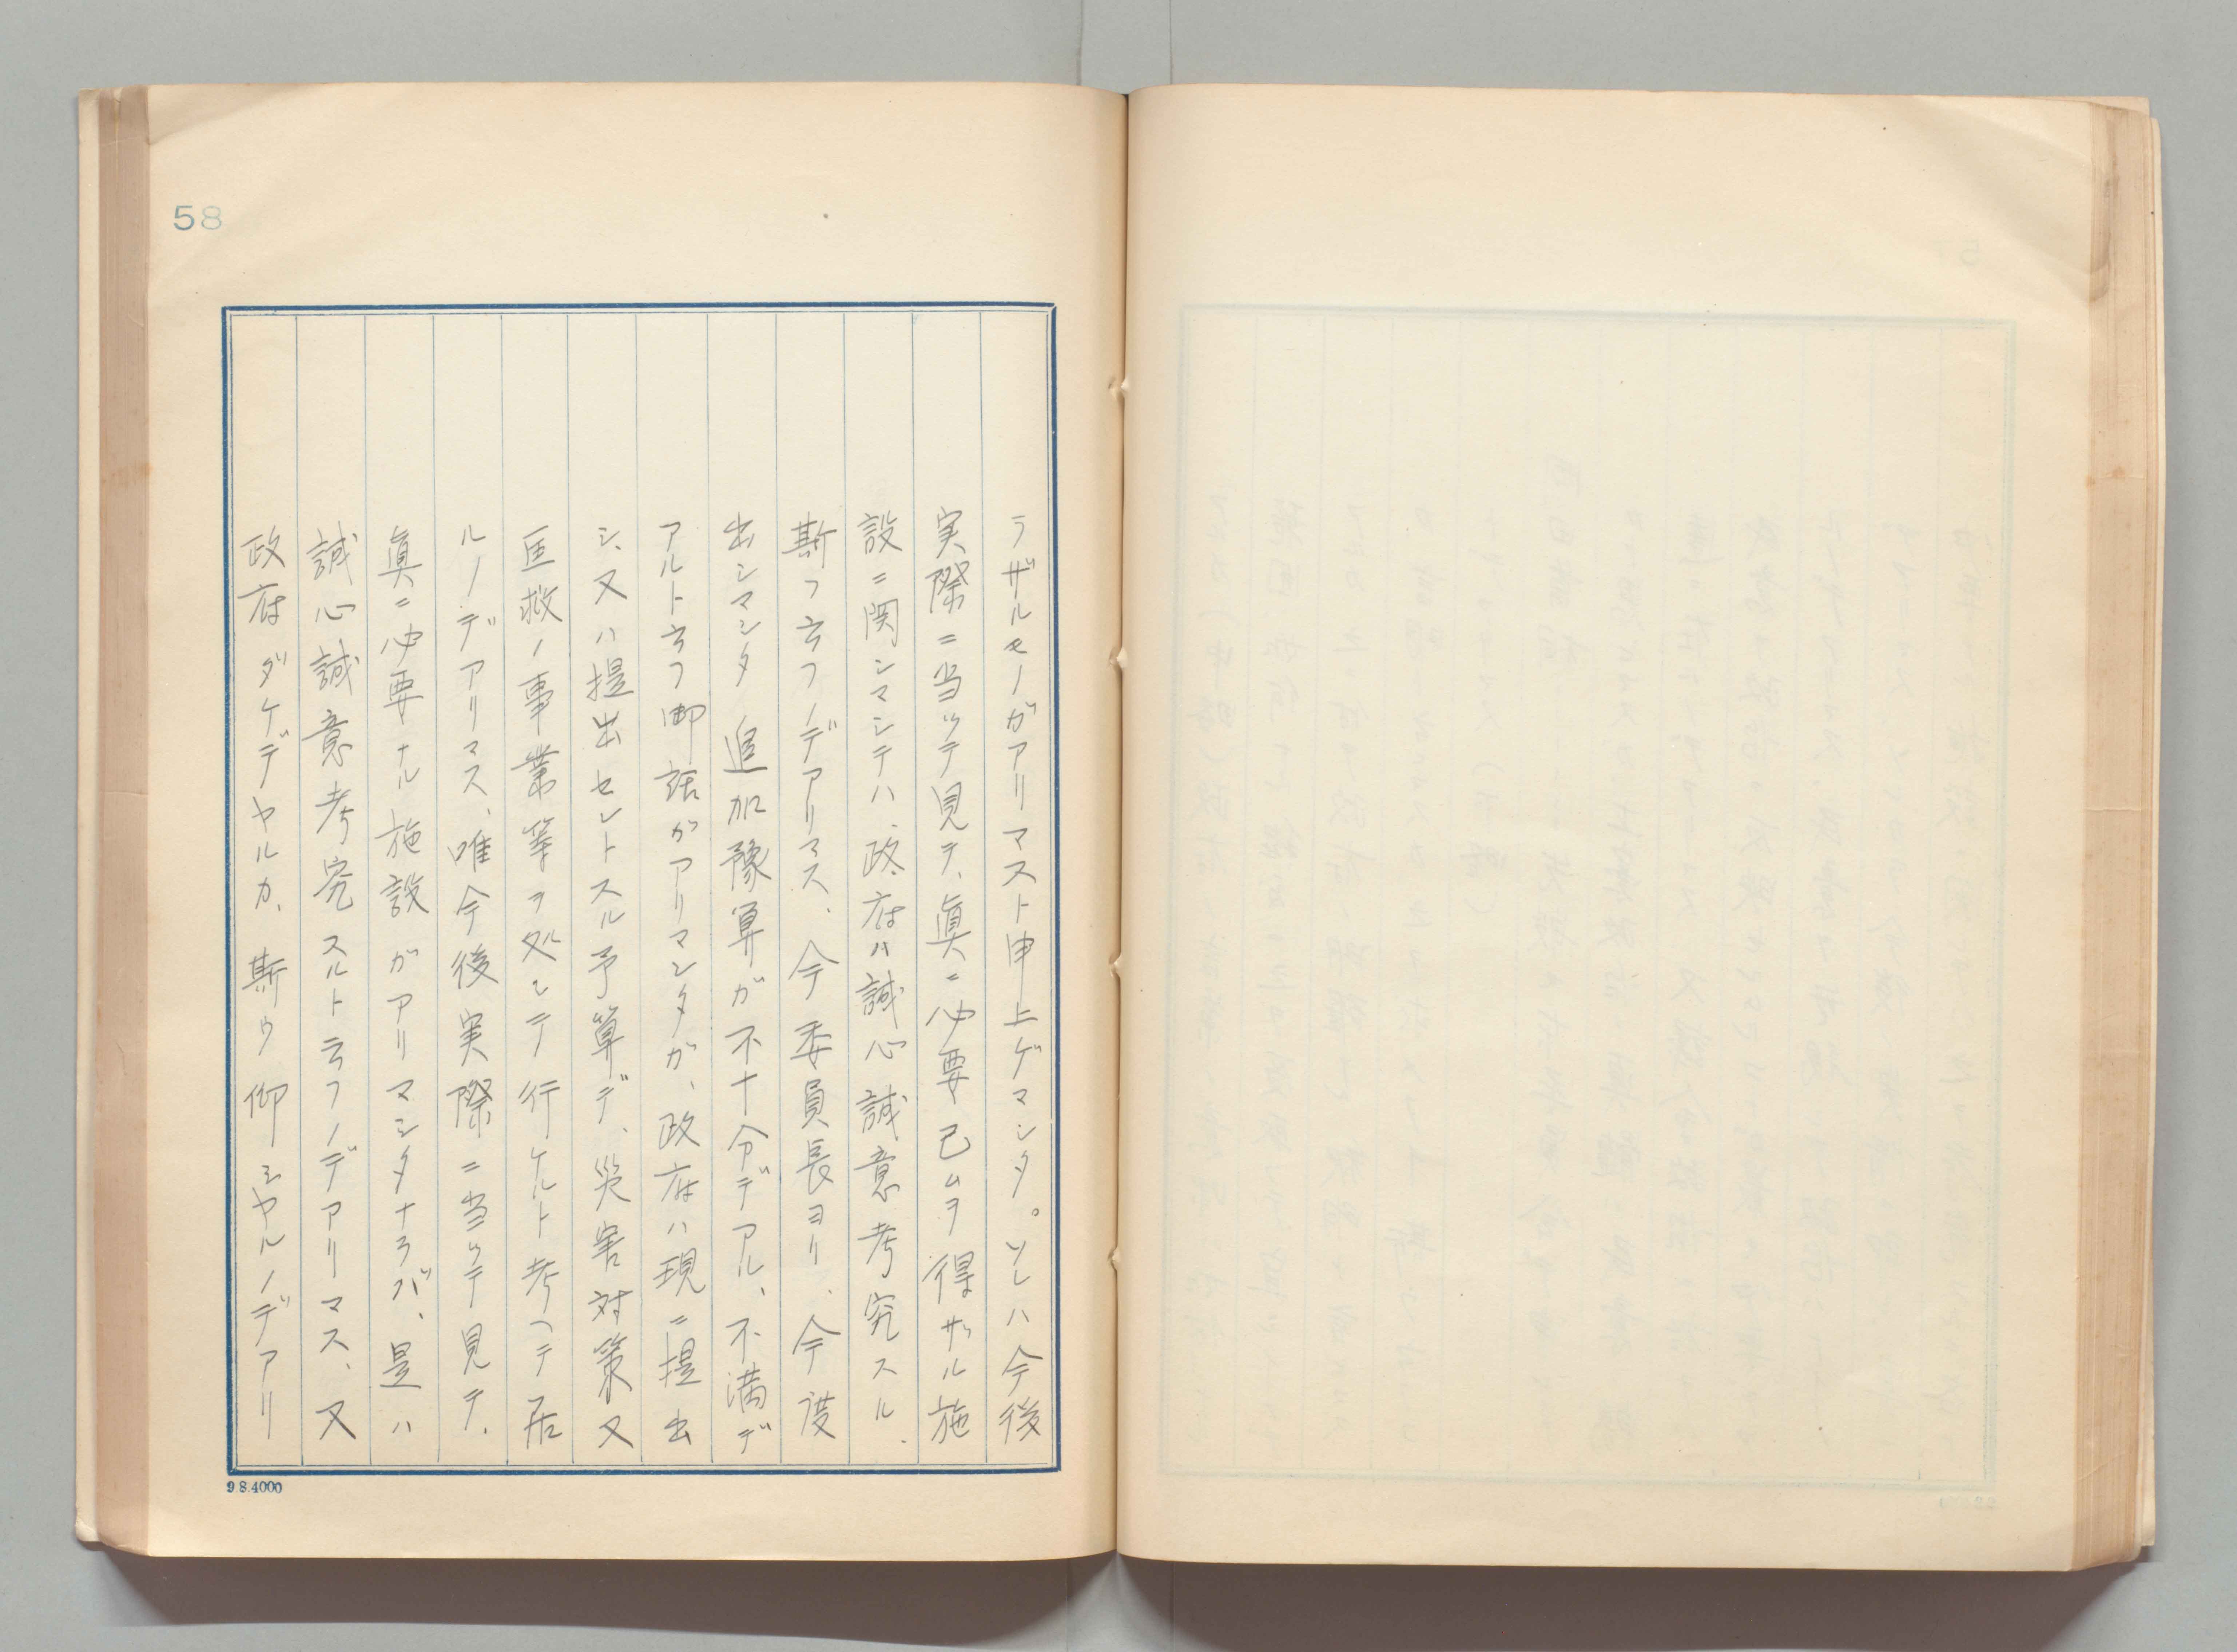 58
ラザルモノガアリマスト申上ゲマシタ。ソレハ今後
実際ニ当ッテ見テ、眞ニ必要已ムヲ得ザル施
設ニ関シマシテハ、政府ハ誠心誠意考究スル、
斯フ云フノデアリマス、今委員長ヨリ、今度
出シマシタ追加豫算ガ不十分デアル、不満デ
アルト云フ御話ガアリマシタガ、政府ハ現ニ提出
シ、又ハ提出セントスル予算デ、災害対策又
匡救ノ事業等ヲ処シテ行ケルト考ヘテ居
ルノデアリマス、唯今後実際ニ当ッテ見テ、
眞ニ必要ナル施設ガアリマシタナラバ、是ハ
誠心誠意考究スルト云フノデアリマス、又
政府ダケデヤルカ、斯ウ仰シヤルノデアリ
9.8.4000